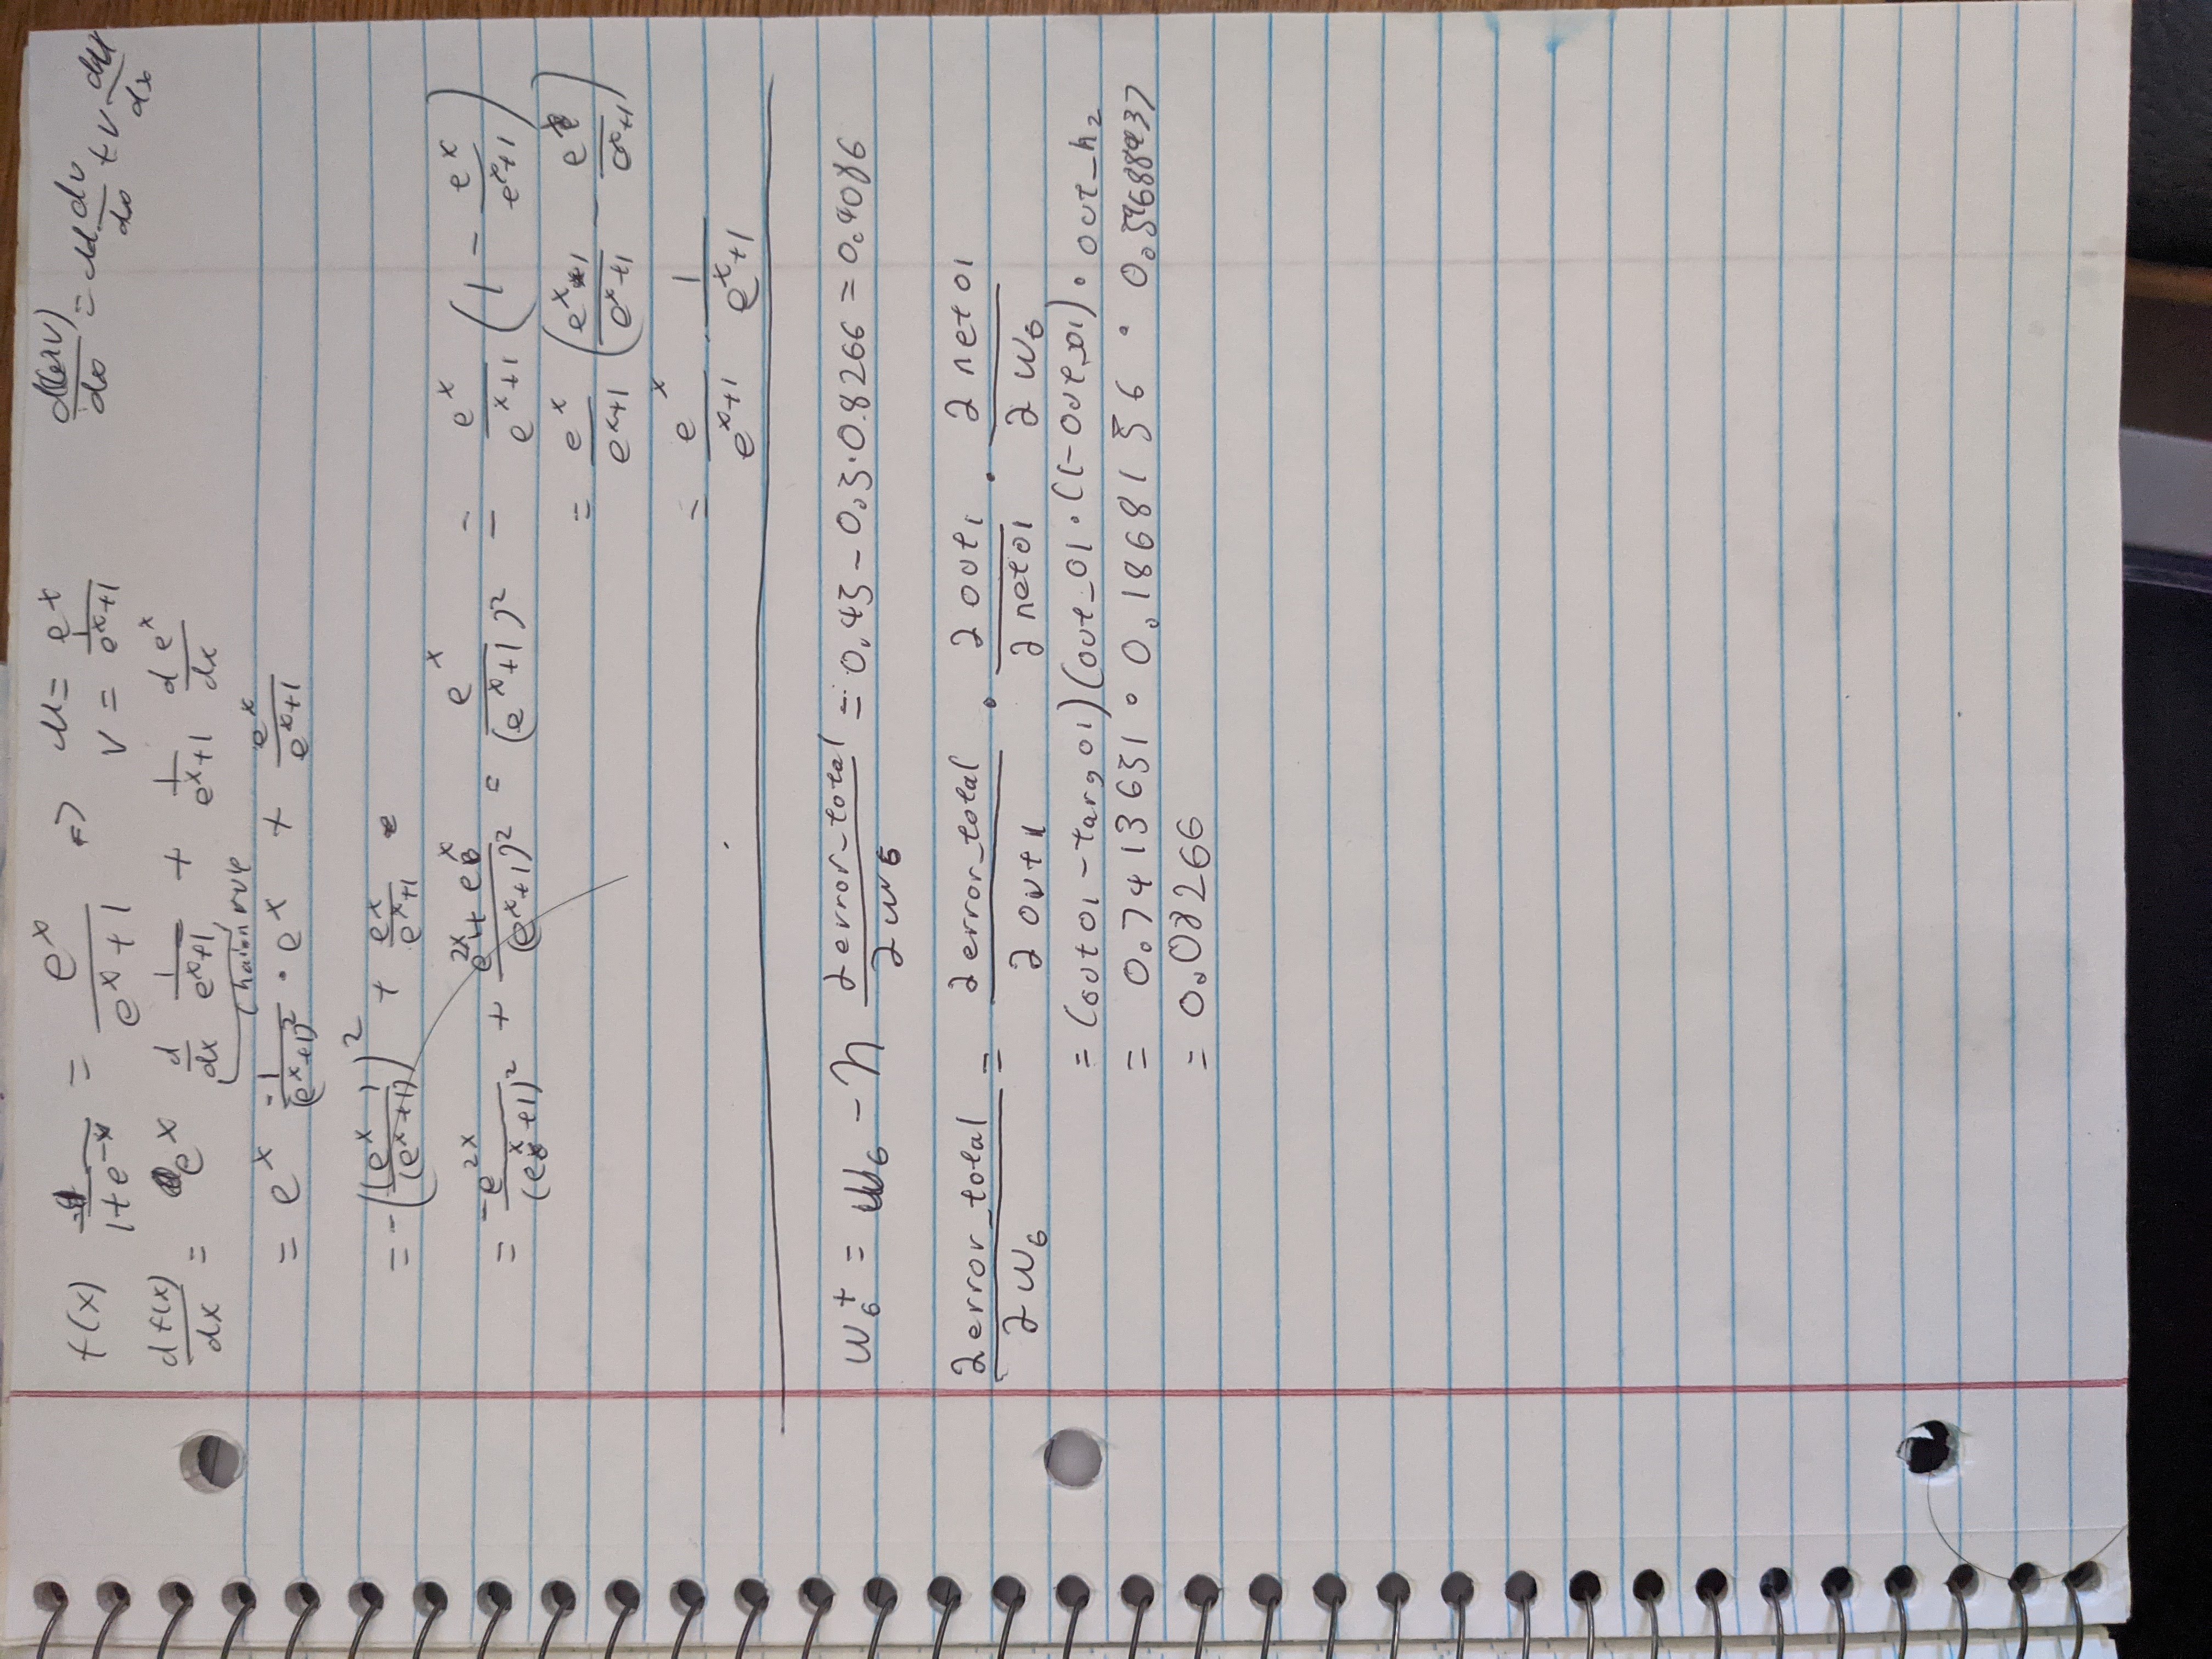 f(x) 1/(1+e^-x) = e^x/(e^x+1) => u = e^x v = 1/(e^x+1) d(uv)/dx = u dv/dx + v du/dx
d f(x)/dx = e^x d/dx 1/(e^x+1) + 1/(e^x+1) d e^x/dx
= e^x -1/(e^x+1)^2 · e^x + e^x/(e^x+1)
= -((e^x 1)/(e^x+1))^2 + e^x/(e^x+1)
= -e^2x/(e^x+1)^2 + (e^2x + e^x)/(e^x+1)^2 = e^x/(e^x+1)^2 = e^x/(e^x+1) (1 - e^x/(e^x+1))
= e^x/(e^x+1) ((e^x+1)/(e^x+1) - e^x/(e^x+1))
= e^x/(e^x+1) · 1/(e^x+1)
w6^+ = w6 - η ∂error_total/∂w6 = 0.45 - 0.5·0.8266 = 0.4086
∂error_total/∂w6 = ∂error_total/∂out1 · ∂out1/∂neto1 · ∂neto1/∂w6
= (outo1 - targo1)(out_o1·(1-out_o1) · out_h2
= 0.7413651 · 0.1868156 · 0.59688437
= 0.08266